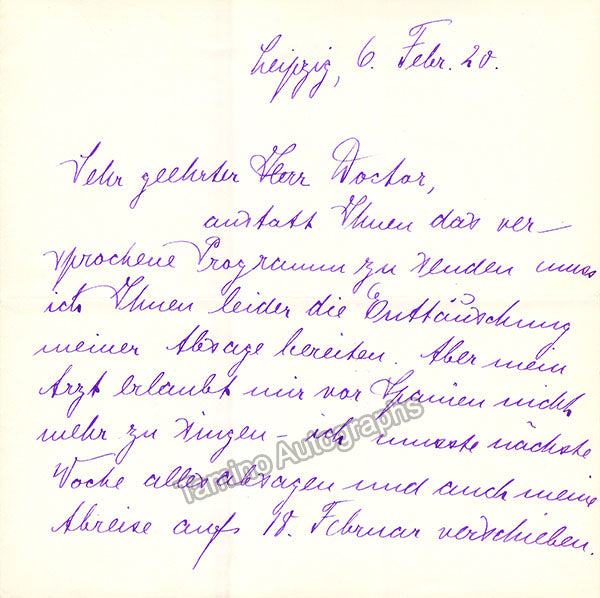 Leipzig, 6. Febr. 20.
Sehr geehrter Herr Doctor,
anstatt Ihnen das ver-
sprochene Programm zu senden muss
ich Ihnen leider die Enttäuschung
meiner Absage bereiten. Aber mein
Arzt erlaubt mir vor Spanien nicht
mehr zu singen - ich musste nächste
Woche alles absagen und auch meine
Abreise aufs 18. Februar verschieben.
Tamino Autographs